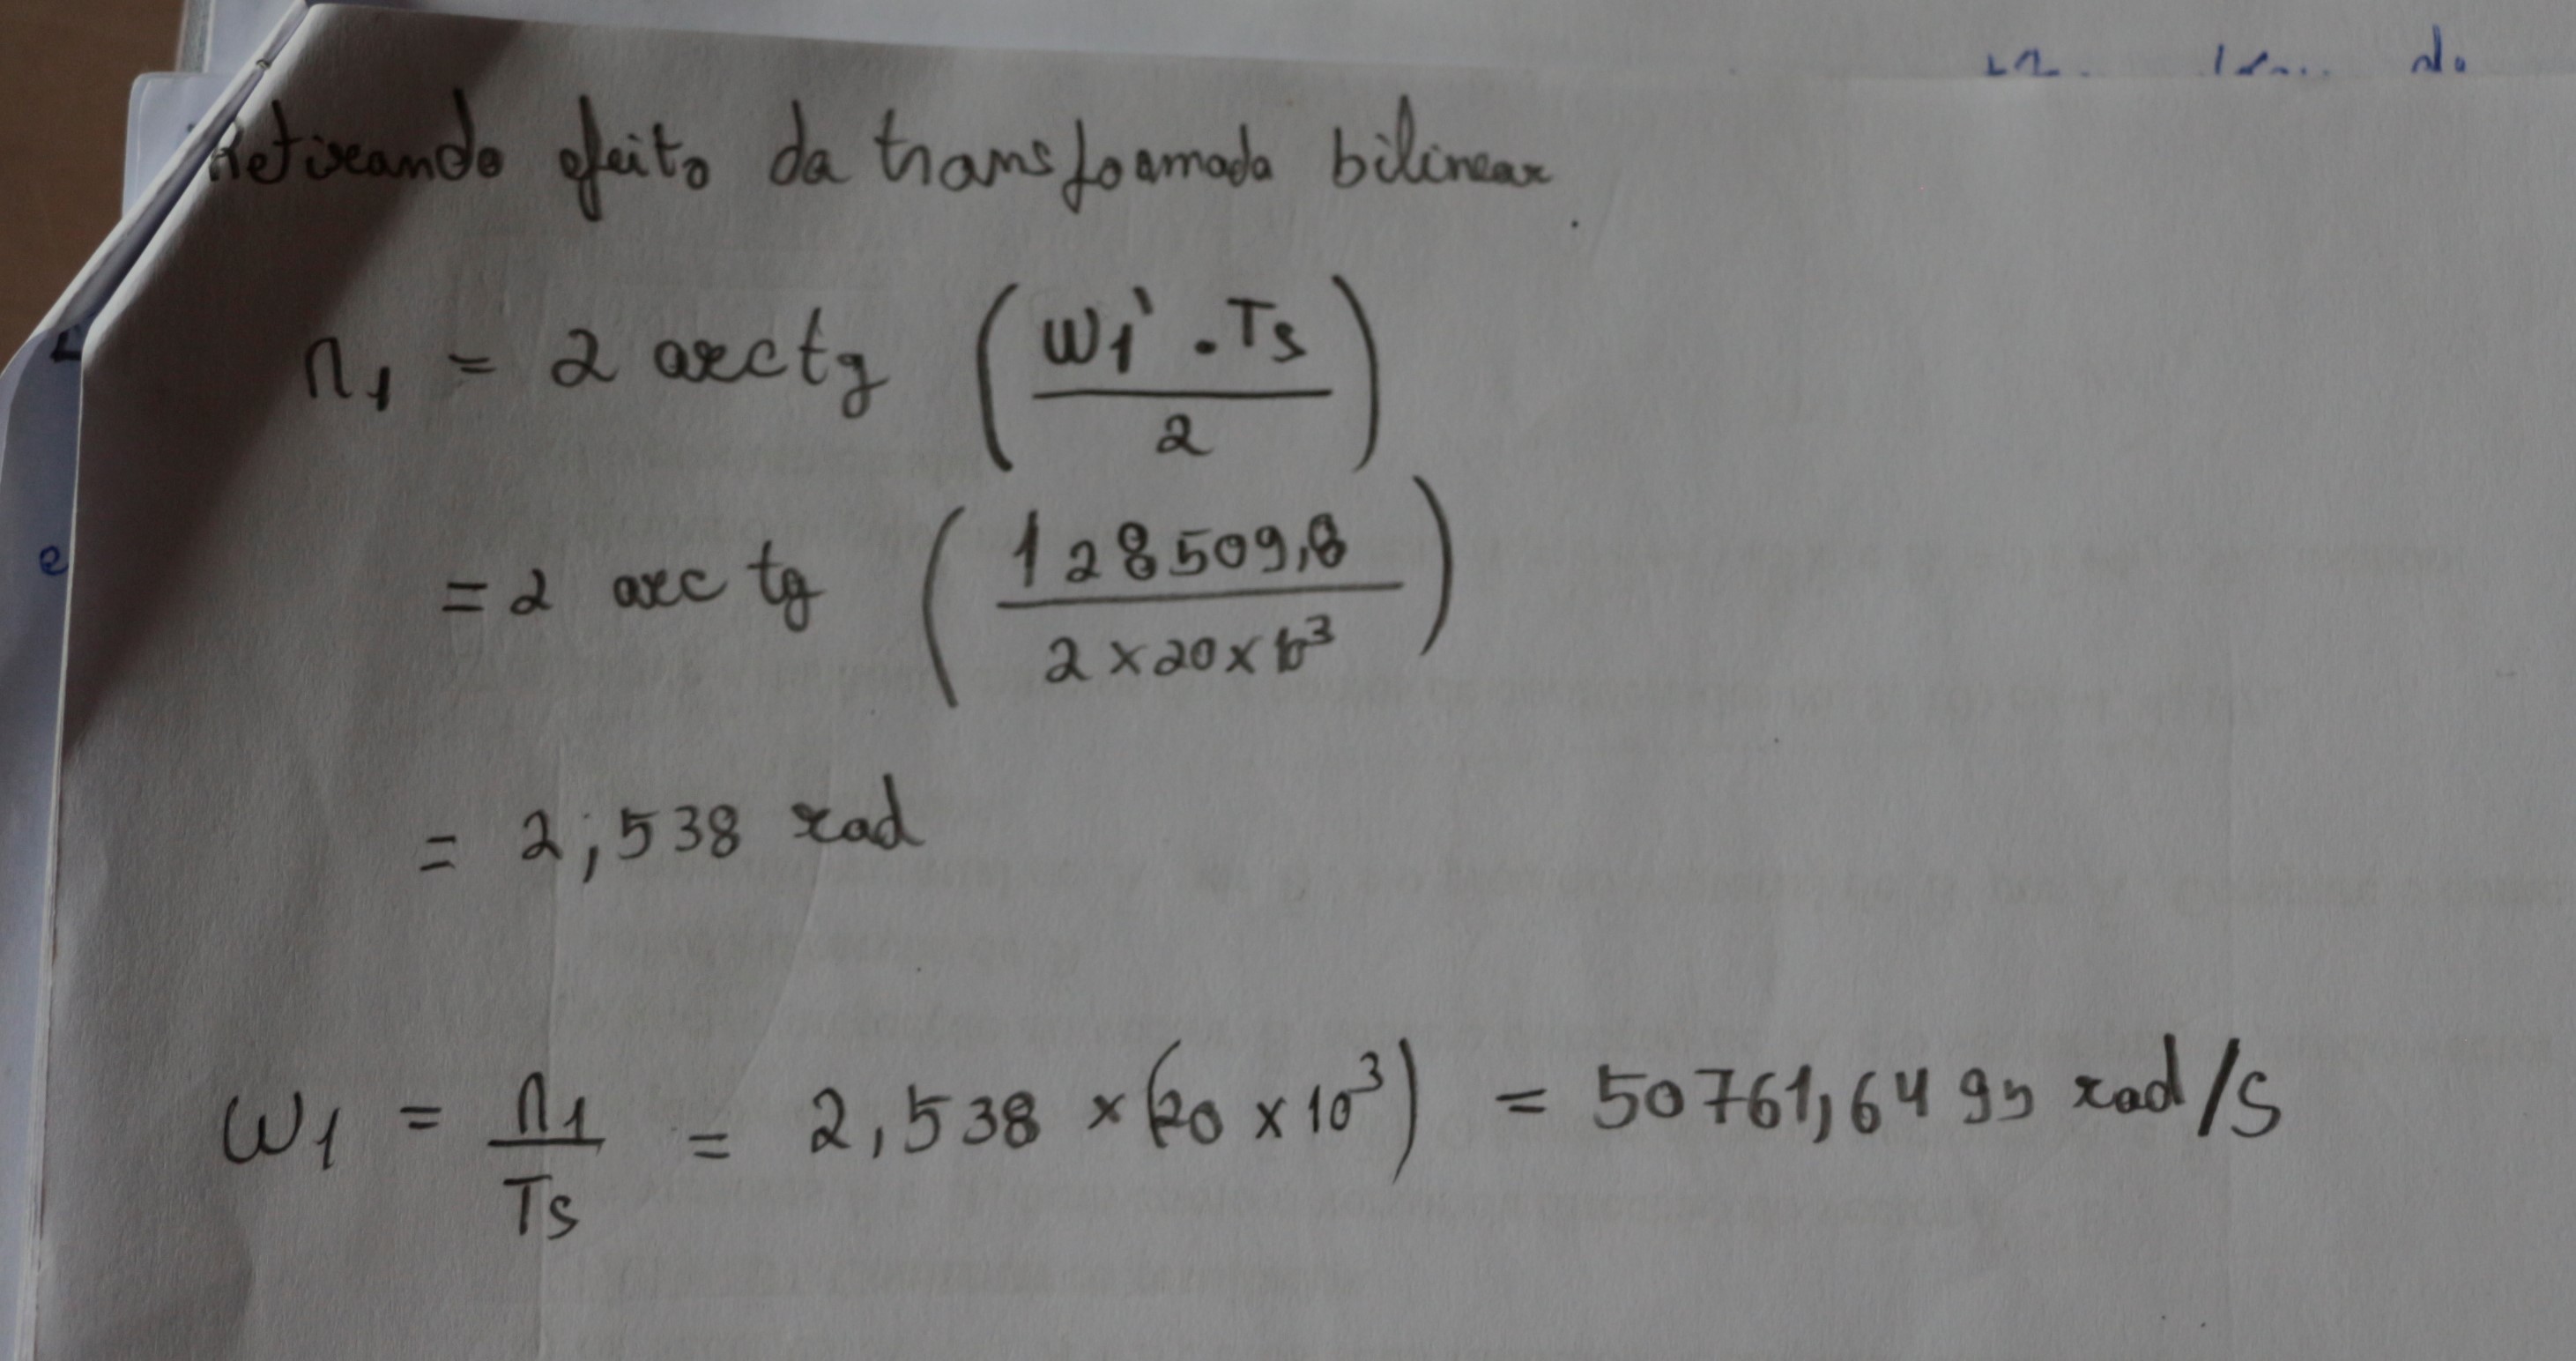 Retirando efeito da transformada bilinear.
Ω₁ = 2 arctg (ω₁' · Ts / 2)
= 2 arc tg (128509,8 / 2 × 20 × 10³)
= 2,538 rad
ω₁ = Ω₁ / Ts = 2,538 × (20 × 10³) = 50761,6495 rad/s